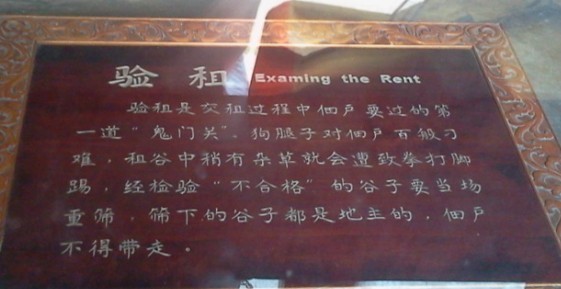 验租 Examing the Rent
验租是交租过程中佃户要过的第
一道“鬼门关”。狗腿子对佃户百般刁
难，租谷中稍有杂草就会遭致拳打脚
踢，经检验“不合格”的谷子要当场
重筛。筛下的谷子都是地主的，佃户
不得带走。